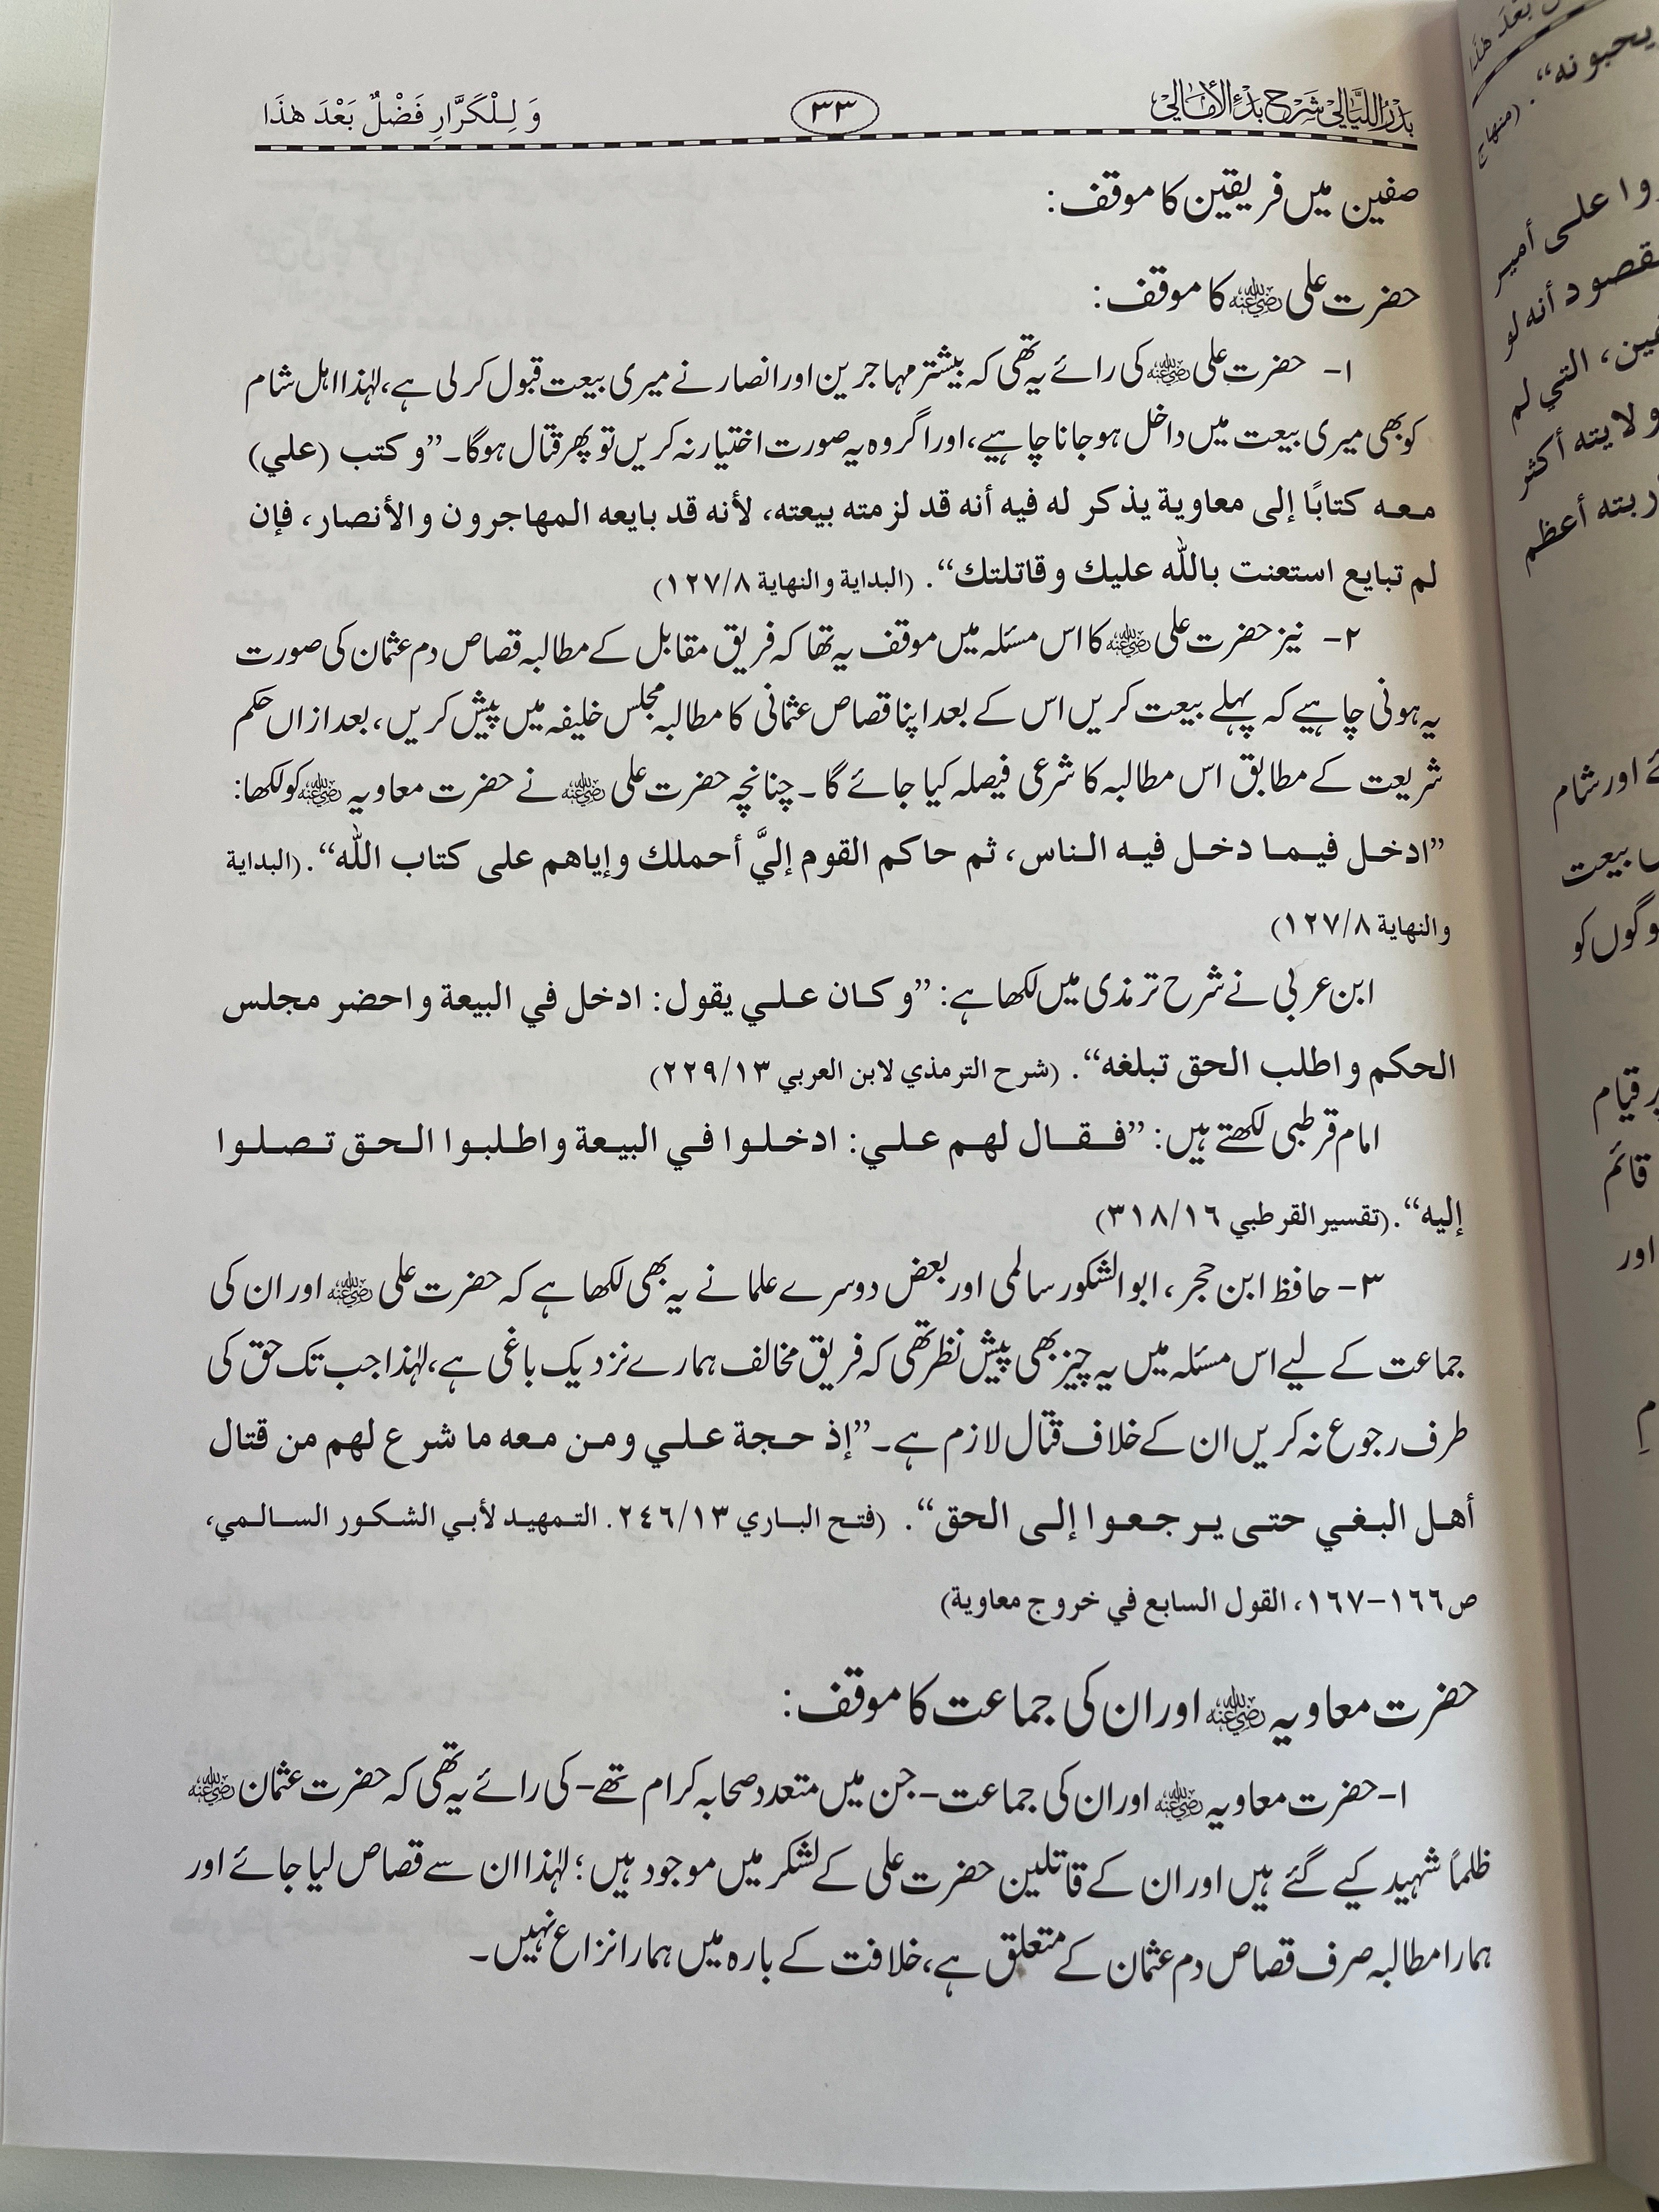 بَدْرُ اللَّیَالِيْ شَرْح بَدْءِ الأَمَالِيْ
۳۳
وَ لِلْكَرَّارِ فَضْلٌ بَعْدَ هٰذَا
صفین میں فریقین کا موقف:
حضرت علی رضی اللہ عنہ کا موقف:
۱- حضرت علی رضی اللہ عنہ کی رائے یہ تھی کہ بیشتر مہاجرین اور انصار نے میری بیعت قبول کر لی ہے، لہٰذا اہل شام
کو بھی میری بیعت میں داخل ہو جانا چاہیے، اور اگر وہ یہ صورت اختیار نہ کریں تو پھر قتال ہوگا۔ ”و کتب (علي)
معه كتابًا إلى معاوية يذكر له فيه أنه قد لزمته بيعته، لأنه قد بايعه المهاجرون والأنصار، فإن
لم تبايع استعنت بالله عليك وقاتلتك“. (البداية والنهاية ۱۲۷/۸)
۲- نیز حضرت علی رضی اللہ عنہ کا اس مسئلہ میں موقف یہ تھا کہ فریق مقابل کے مطالبہ قصاص دم عثمان کی صورت
یہ ہونی چاہیے کہ پہلے بیعت کریں اس کے بعد اپنا قصاص عثمانی کا مطالبہ مجلس خلیفہ میں پیش کریں، بعد ازاں حکم
شریعت کے مطابق اس مطالبہ کا شرعی فیصلہ کیا جائے گا۔ چنانچہ حضرت علی رضی اللہ عنہ نے حضرت معاویہ رضی اللہ عنہ کو لکھا:
”ادخل فيما دخل فيه الناس، ثم حاكم القوم إليَّ أحملك وإياهم على كتاب الله“. (البداية
والنهاية ۱۲۷/۸)
ابن عربی نے شرح ترمذی میں لکھا ہے: ”وكان علي يقول: ادخل في البيعة واحضر مجلس
الحكم واطلب الحق تبلغه“. (شرح الترمذي لابن العربي ۲۲۹/۱۳)
امام قرطبی لکھتے ہیں: ”فقال لهم علي: ادخلوا في البيعة واطلبوا الحق تصلوا
إليه“. (تفسير القرطبي ۳۱۸/۱٦)
۳- حافظ ابن حجر، ابو الشکور سالمی اور بعض دوسرے علما نے یہ بھی لکھا ہے کہ حضرت علی رضی اللہ عنہ اور ان کی
جماعت کے لیے اس مسئلہ میں یہ چیز بھی پیش نظر تھی کہ فریق مخالف ہمارے نزدیک باغی ہے، لہٰذا جب تک حق کی
طرف رجوع نہ کریں ان کے خلاف قتال لازم ہے۔ ”إذ حجة علي ومن معه ما شرع لهم من قتال
أهل البغي حتى يرجعوا إلى الحق“. (فتح الباري ۲٤٦/۱۳. التمهيد لأبي الشكور السالمي،
ص۱٦٦-۱٦۷، القول السابع في خروج معاوية)
حضرت معاویہ رضی اللہ عنہ اور ان کی جماعت کا موقف:
۱- حضرت معاویہ رضی اللہ عنہ اور ان کی جماعت - جن میں متعدد صحابہ کرام تھے - کی رائے یہ تھی کہ حضرت عثمان رضی اللہ عنہ
ظلماً شہید کیے گئے ہیں اور ان کے قاتلین حضرت علی کے لشکر میں موجود ہیں؛ لہٰذا ان سے قصاص لیا جائے اور
ہمارا مطالبہ صرف قصاص دم عثمان کے متعلق ہے، خلافت کے بارہ میں ہمارا نزاع نہیں۔
يحبونه“. (منهاج
على أمير
أنه لو
التي لم
ولايته أكثر
أعظم
اور شام
بیعت
قیام
قائم
اور